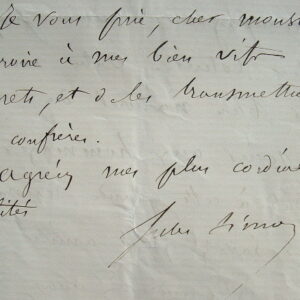 Je vous prie, cher mons
croire à mes bien vifs
rets, et de les transmettre
confrères.
agréez mes plus cordia
ités
Jules Simon